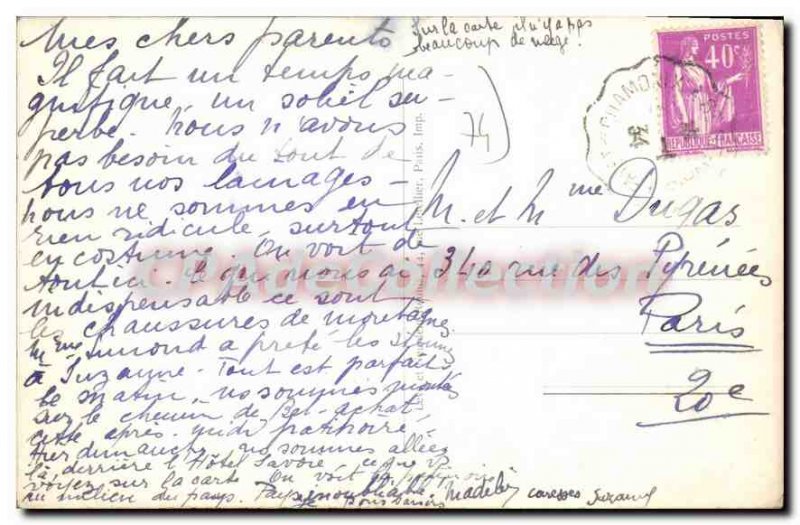 Mes chers parents
Sur la carte il n'y a pas
beaucoup de neige.
Il fait un temps ma-
gnifique, un soleil su-
perbe. Nous n'avons
pas besoin du tout de
tous nos lainages -
nous ne sommes en
rien ridicule, surtout
en costume. On voit de
tout ici. Ce qui nous a
indispensable ce sont
les chaussures de montagne.
Mme Simond a prêté les siennes
à Suzanne - Tout est parfait
le matin, ns sommes montés
sur le chemin de
cette après-midi patinoire.
Hier dimanche ns sommes allées
là, derrière l'Hôtel Savoie, ce que vs
voyez sur la carte. On voit la patinoire
au milieu du pays.
Madeleine
caresses Suzanne
74
POSTES
40c
RÉPUBLIQUE FRANÇAISE
CHAMONIX
34
M. et Mme Dugas
340 rue des Pyrénées
Paris
20e
Paris, Imp.
CPA de Collection